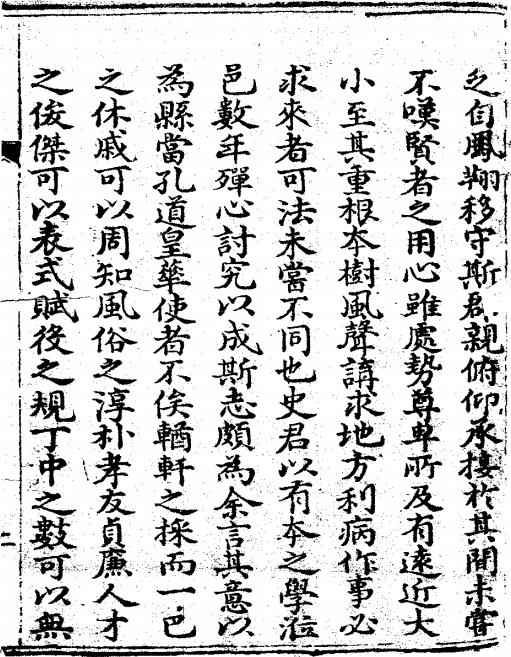 乏自鳳翔移守斯郡親俯仰承接於其間未嘗
不嘆賢者之用心雖處勢尊卑所及有遠近大
小至其重根本樹風聲講求地方利病作事必
求來者可法未嘗不同也史君以有本之學涖
邑數年殫心討究以成斯志頗為余言其意以
為縣當孔道皇華使者不俟輶軒之採而一邑
之休戚可以周知風俗之淳朴孝友貞廉人才
之俊傑可以表式賦役之規丁中之數可以無
二